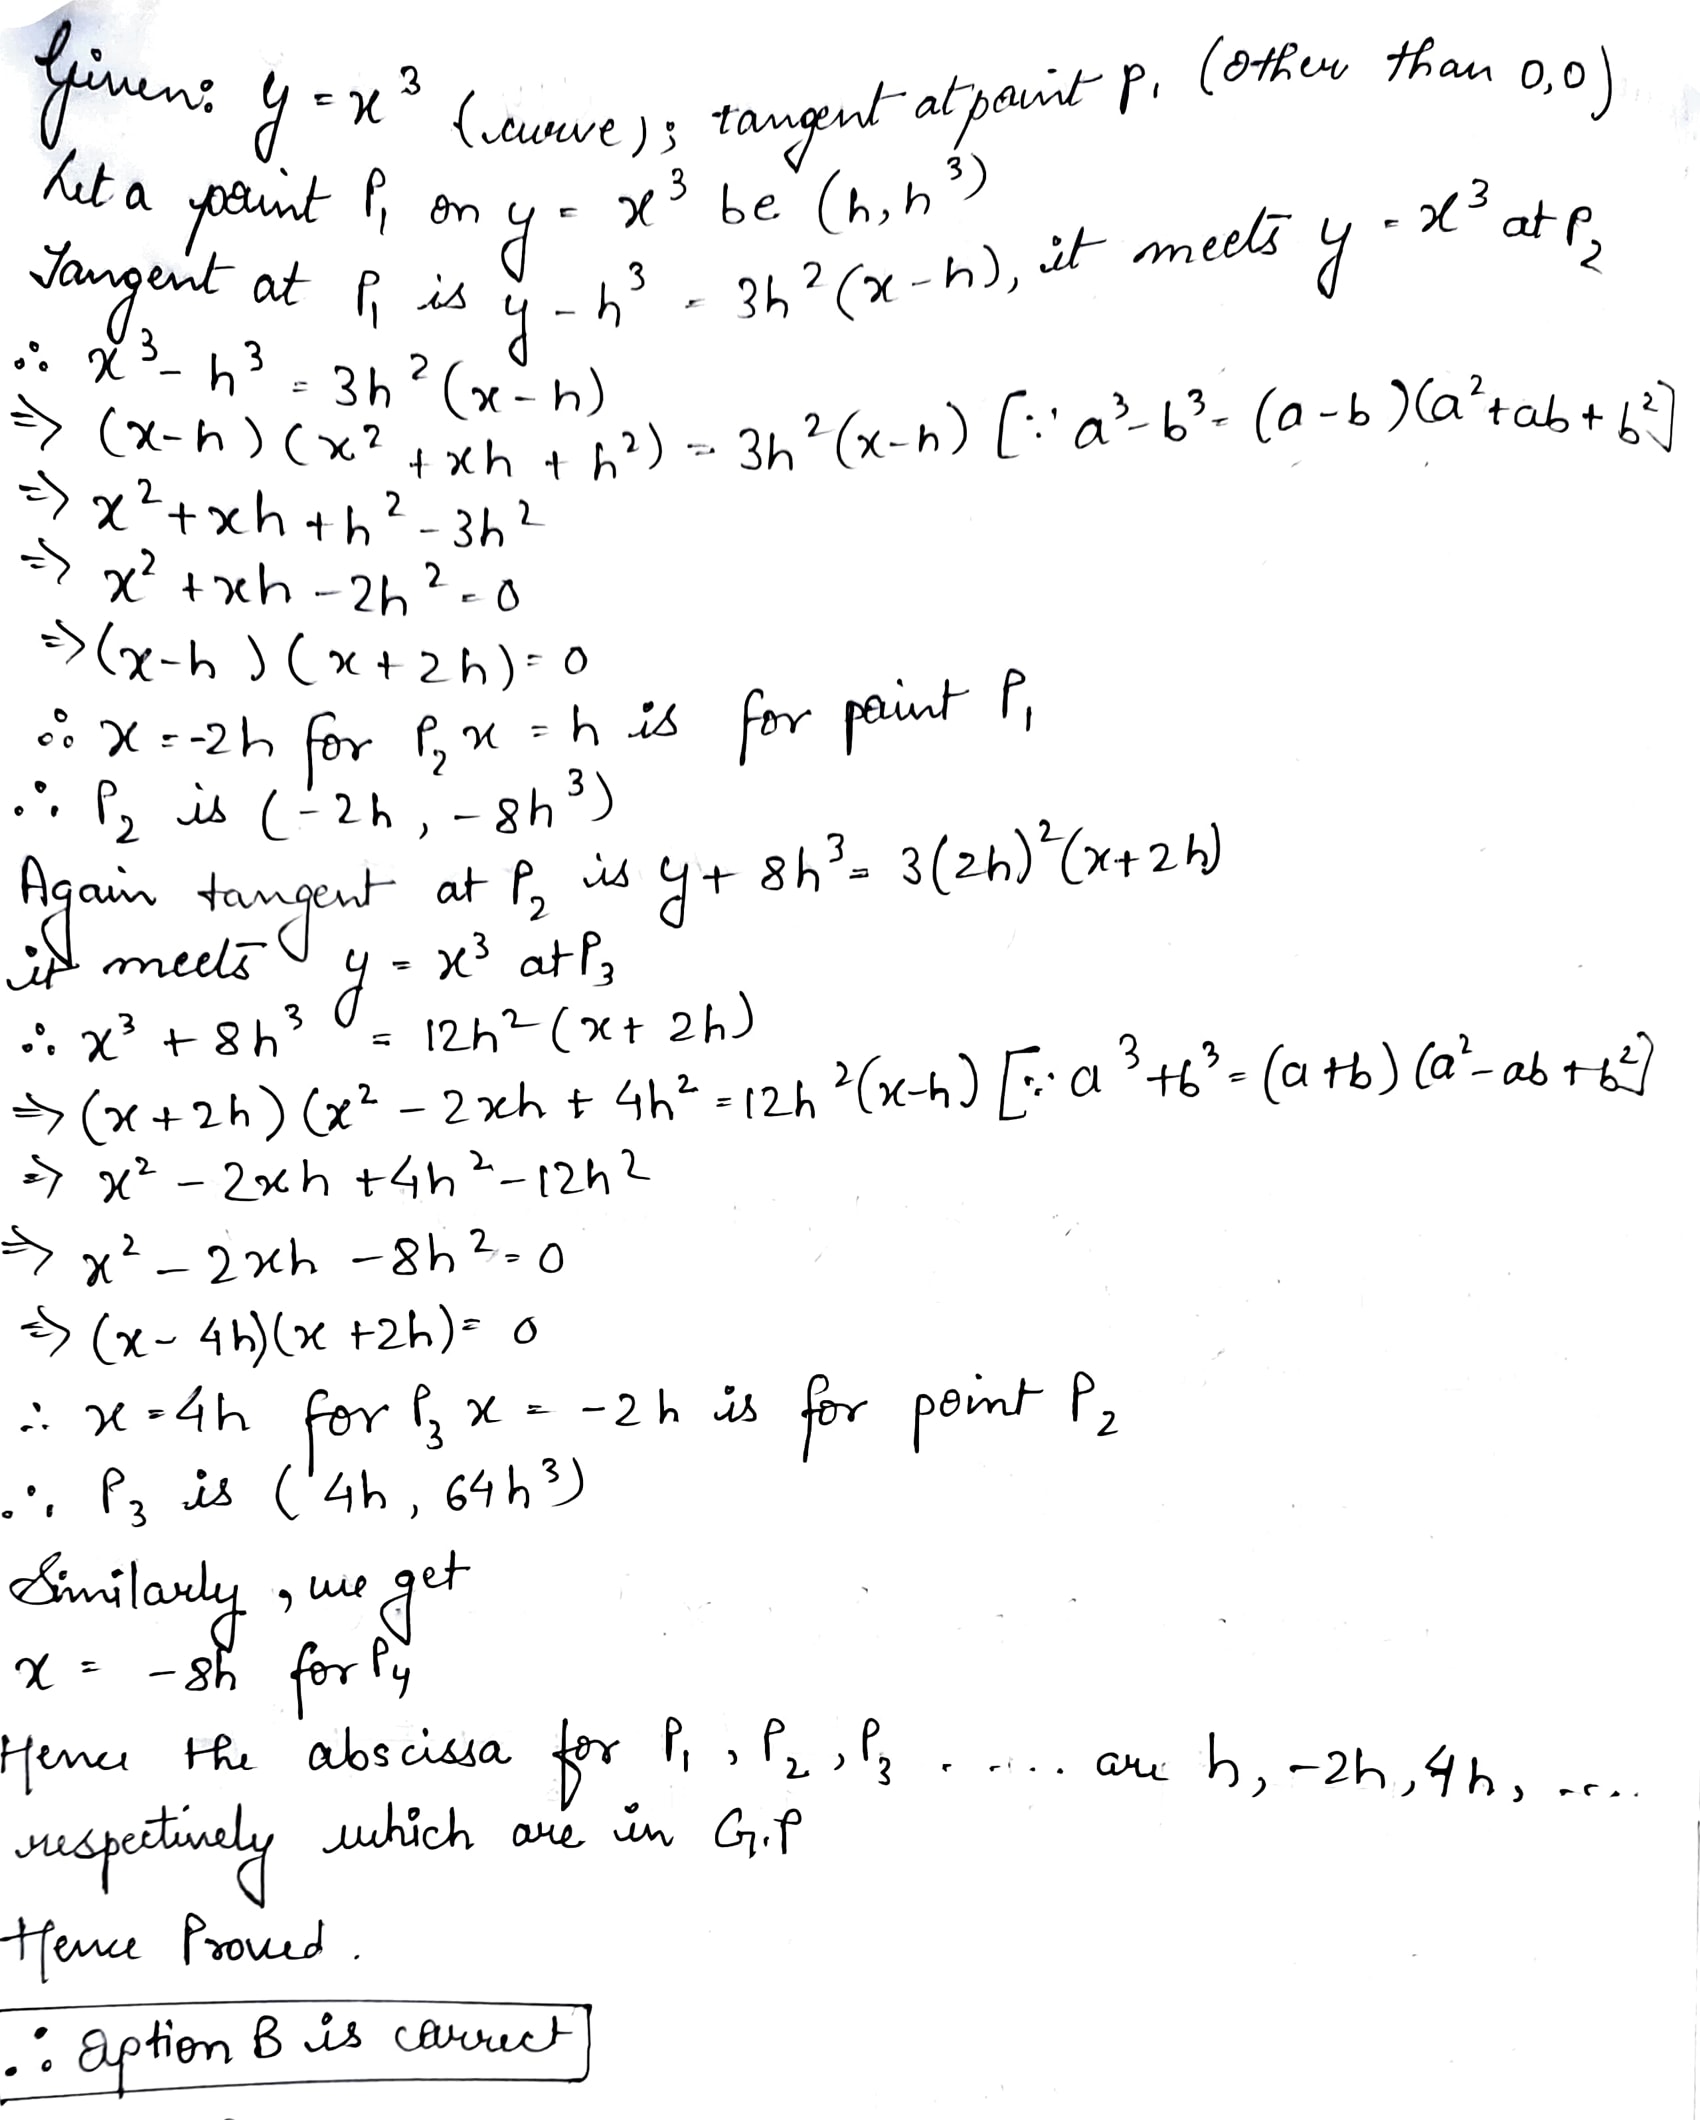 Given: y = x³ (curve); tangent at point P₁ (other than 0,0)
Let a point P₁ on y = x³ be (h, h³)
Tangent at P₁ is y - h³ = 3h²(x-h), it meets y = x³ at P₂
∴ x³ - h³ = 3h²(x-h)
⇒ (x-h)(x² + xh + h²) = 3h²(x-h) [∵ a³-b³ = (a-b)(a²+ab+b²]
⇒ x² + xh + h² - 3h²
⇒ x² + xh - 2h² = 0
⇒ (x-h)(x+2h) = 0
∴ x = -2h for P₂ x = h is for point P₁
∴ P₂ is (-2h, -8h³)
Again tangent at P₂ is y + 8h³ = 3(2h)²(x+2h)
it meets y = x³ at P₃
∴ x³ + 8h³ = 12h²(x+2h)
⇒ (x+2h)(x² - 2xh + 4h² = 12h²(x-h) [∵ a³+b³ = (a+b)(a²-ab+b²]
⇒ x² - 2xh + 4h² - 12h²
⇒ x² - 2xh - 8h² = 0
⇒ (x - 4h)(x + 2h) = 0
∴ x = 4h for P₃ x = -2h is for point P₂
∴ P₃ is (4h, 64h³)
Similarly, we get
x = -8h for P₄
Hence the abscissa for P₁, P₂, P₃ ...... are h, -2h, 4h, .....
respectively which are in G.P
Hence Proved.
∴ option B is correct